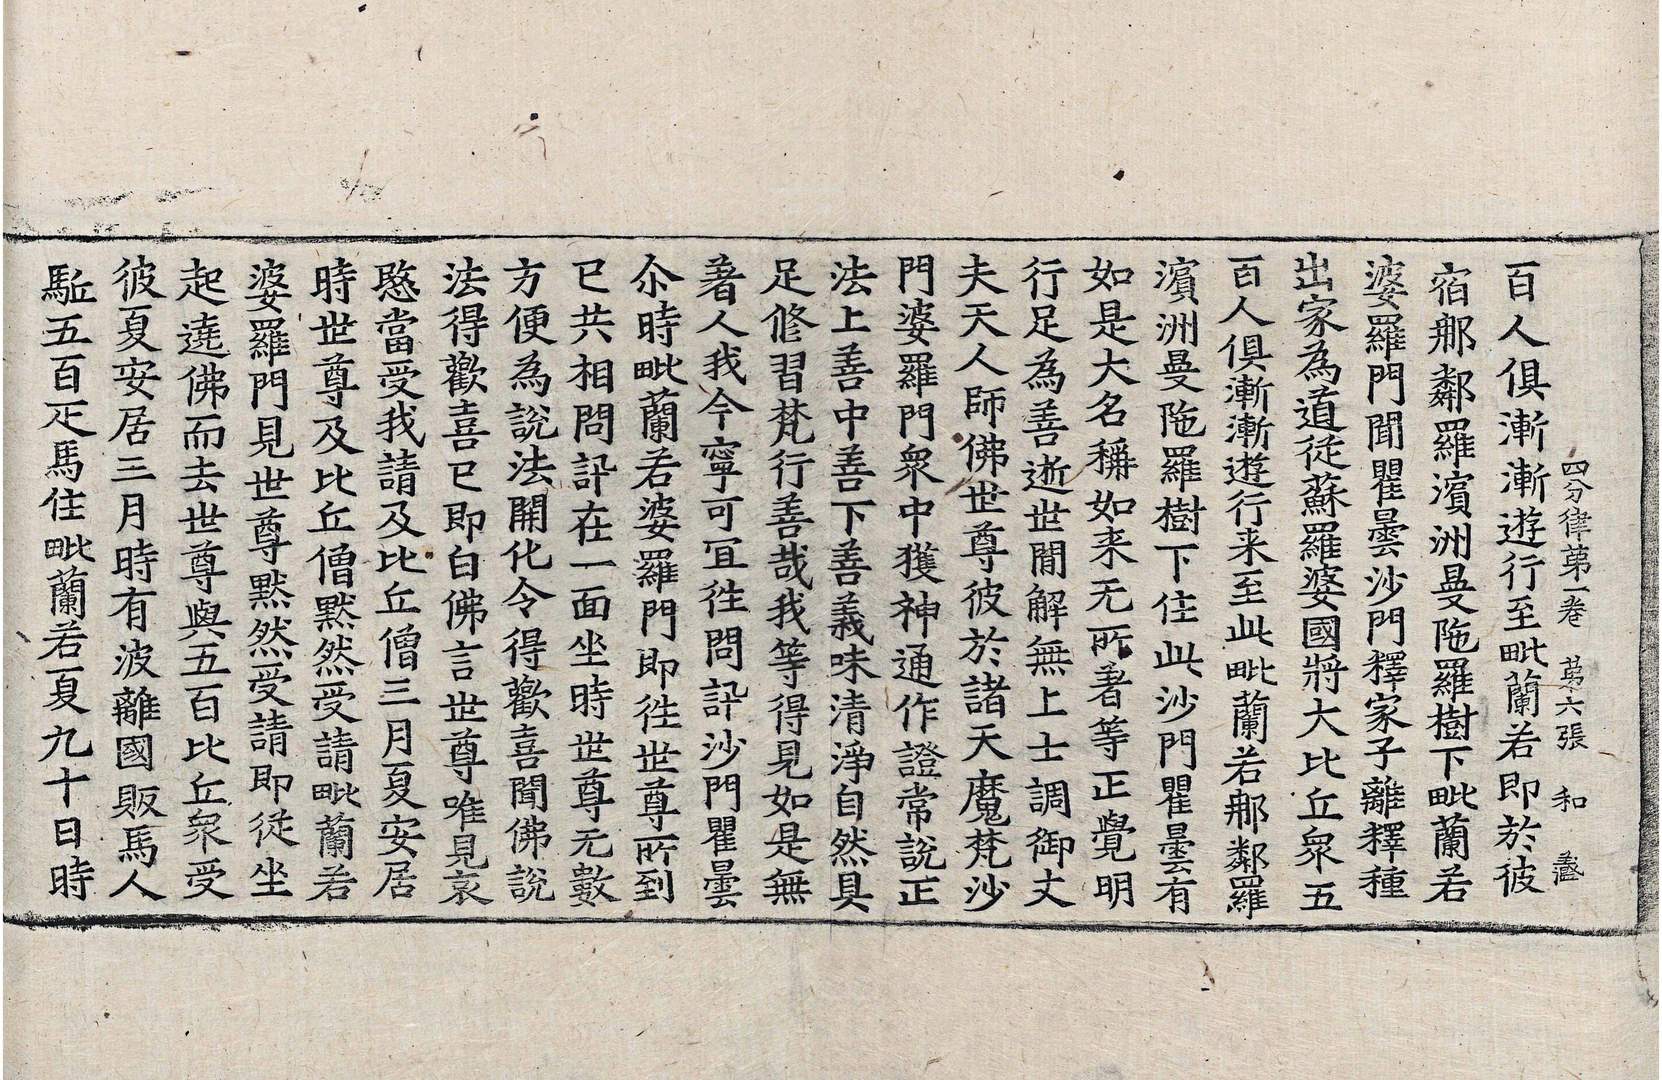 四分律第一卷 第六張 和
百人俱漸漸遊行至毗蘭若即於彼
宿𨚗鄰羅濱洲曼陁羅樹下毗蘭若
婆羅門聞瞿曇沙門釋家子離釋種
出家為道從蘇羅婆國將大比丘眾五
百人俱漸漸遊行来至此毗蘭若𨚗鄰羅
濱洲曼陁羅樹下住此沙門瞿曇有
如是大名稱如来无所著等正覺明
行足為善逝世閒解無上士調御丈
夫天人師佛世尊彼於諸天魔梵沙
門婆羅門眾中獲神通作證常說正
法上善中善下善義味清淨自然具
足修習梵行善哉我等得見如是無
著人我今寧可冝徃問訊沙門瞿曇
尒時毗蘭若婆羅門即徃世尊所到
已共相問訊在一面坐時世尊无數
方便為說法開化令得歡喜聞佛說
法得歡喜已即白佛言世尊唯見哀
愍當受我請及比丘僧三月夏安居
時世尊及比丘僧默然受請毗蘭若
婆羅門見世尊默然受請即從坐
起遶佛而去世尊與五百比丘眾受
彼夏安居三月時有波離國販馬人
駈五百疋馬住毗蘭若夏九十日時